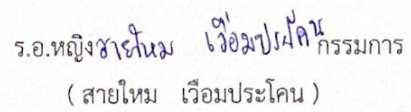 ร.อ.หญิงสายใหม เวือมประโคนกรรมการ
(สายใหม เวือมประโคน)